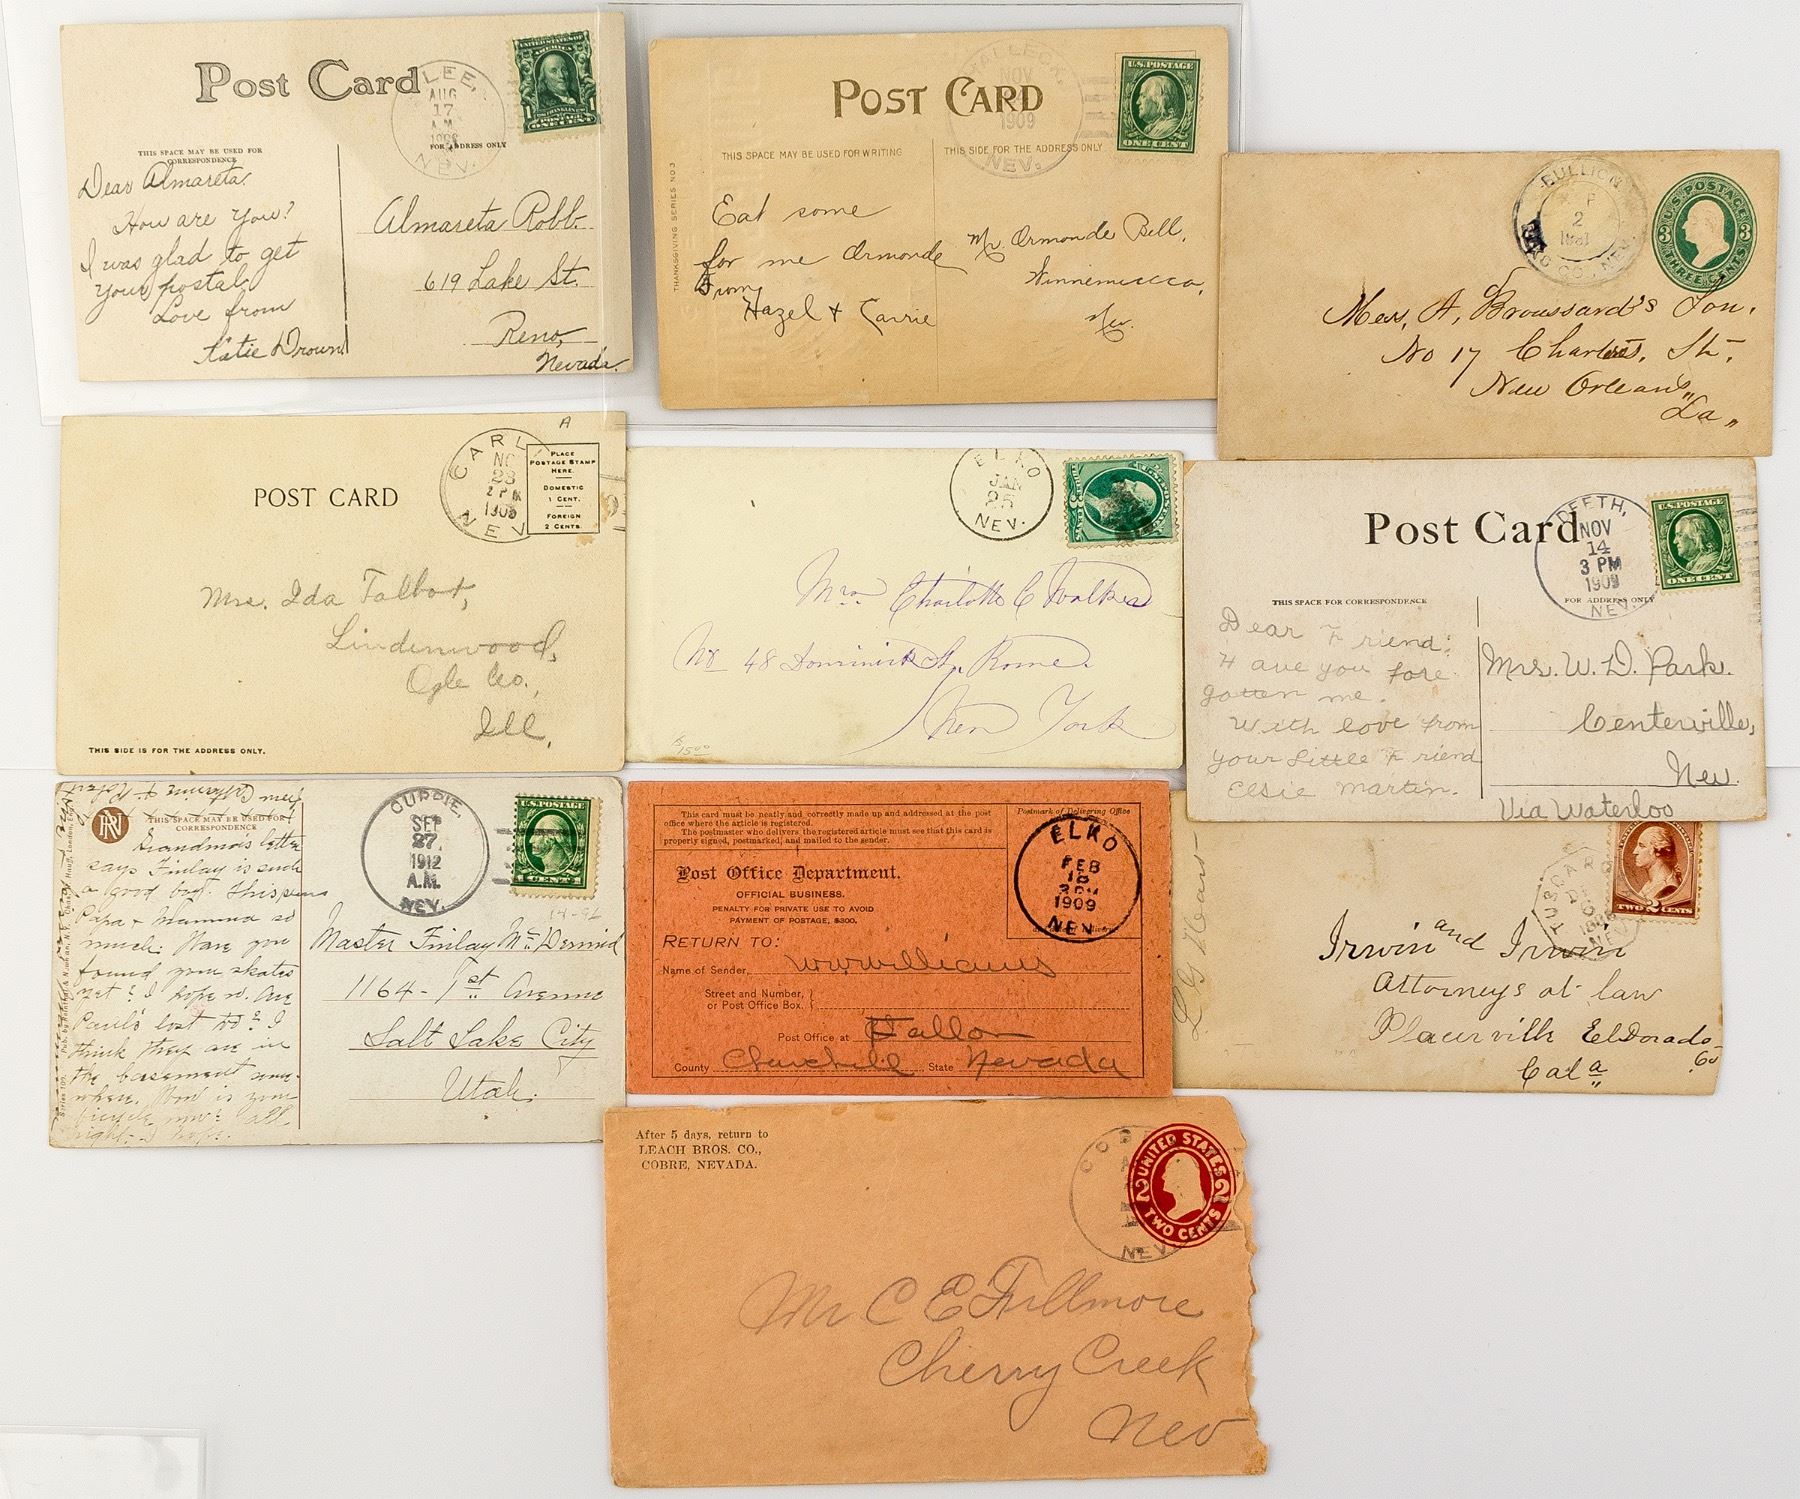 Post Card
LEE,
AUG
17
A.M.
NEV.
UNITED STATES OF
AMERICA
POSTAGE
ONE CENT
THIS SPACE MAY BE USED FOR
CORRESPONDENCE
FOR ADDRESS ONLY
Dear Almareta.
How are you?
I was glad to get
your postal.
Love from
Katie Drown
Almareta Robb.
619 Lake St.
Reno,
Nevada.
POST CARD
NOV
1909
NEV.
U.S. POSTAGE
ONE CENT
THIS SPACE MAY BE USED FOR WRITING
THIS SIDE FOR THE ADDRESS ONLY
THANKSGIVING SERIES NO 3
Eat some
for me Ormonde
From
Hazel & Carrie
Mr. Ormonde Bell,
Winnemucca,
Nev.
BULLION
2
CO., NEV.
U.S. POSTAGE
3 3
THREE CENTS
Mess, A, Broussard's Son,
No 17 Chartres, St,
New Orleans,
La,
A
POST CARD
CARL
NO
23
2 PM
NEV
PLACE
POSTAGE STAMP
HERE.
DOMESTIC
1 CENT.
FOREIGN
2 CENTS
Mrs. Ida Talbot,
Lindenwood,
Ogle Co.,
Ill.
THIS SIDE IS FOR THE ADDRESS ONLY.
ELKO
JAN
25
NEV.
Mrs Charlotte C Walker
No 48 Dominick St, Rome
New York
Post Card
DEETH,
NOV
14
3 PM
1909
NEV.
U.S. POSTAGE
ONE CENT
THIS SPACE FOR CORRESPONDENCE
FOR ADDRESS ONLY
Dear Friend:
Have you fore
gotten me.
With love from
your Little Friend
Elsie Martin.
Mrs. W. D. Park.
Centerville,
Nev.
Via Waterloo
THIS SPACE MAY BE USED FOR
CORRESPONDENCE
Grandma's letter
says Finlay is such
a good boy. This pleases
Papa & Mamma so
much. Have you
found your skates
yet? I hope so. Are
Paul's lost too? I
think they are in
the basement some-
where. How is your
bicycle now? all
right - I hope.
CURRIE,
SEP
27
1912
A.M.
NEV.
U.S. POSTAGE
1 CENT 1
Master Finlay McDermid
1164 - 1st Avenue
Salt Lake City
Utah.
This card must be neatly and correctly made up and addressed at the post
office where the article is registered.
The postmaster who delivers the registered article must see that this card is
properly signed, postmarked, and mailed to the sender.
Postmark of Delivering Office
ELKO
FEB
18
1909
NEV.
Post Office Department.
OFFICIAL BUSINESS.
PENALTY FOR PRIVATE USE TO AVOID
PAYMENT OF POSTAGE, $300.
RETURN TO:
Name of Sender, W W Williams
Street and Number,
or Post Office Box.
Post Office at Fallon
County Churchill State Nevada
TUSCAR
NEV
TWO 2 CENTS
Irwin and Irwin
Attorneys at law
Placerville ElDorado
Co
Cala
After 5 days, return to
LEACH BROS. CO.,
COBRE, NEVADA.
NEV.
UNITED STATES
2 2
TWO CENTS
Mr C E Fillmore
Cherry Creek
Nev